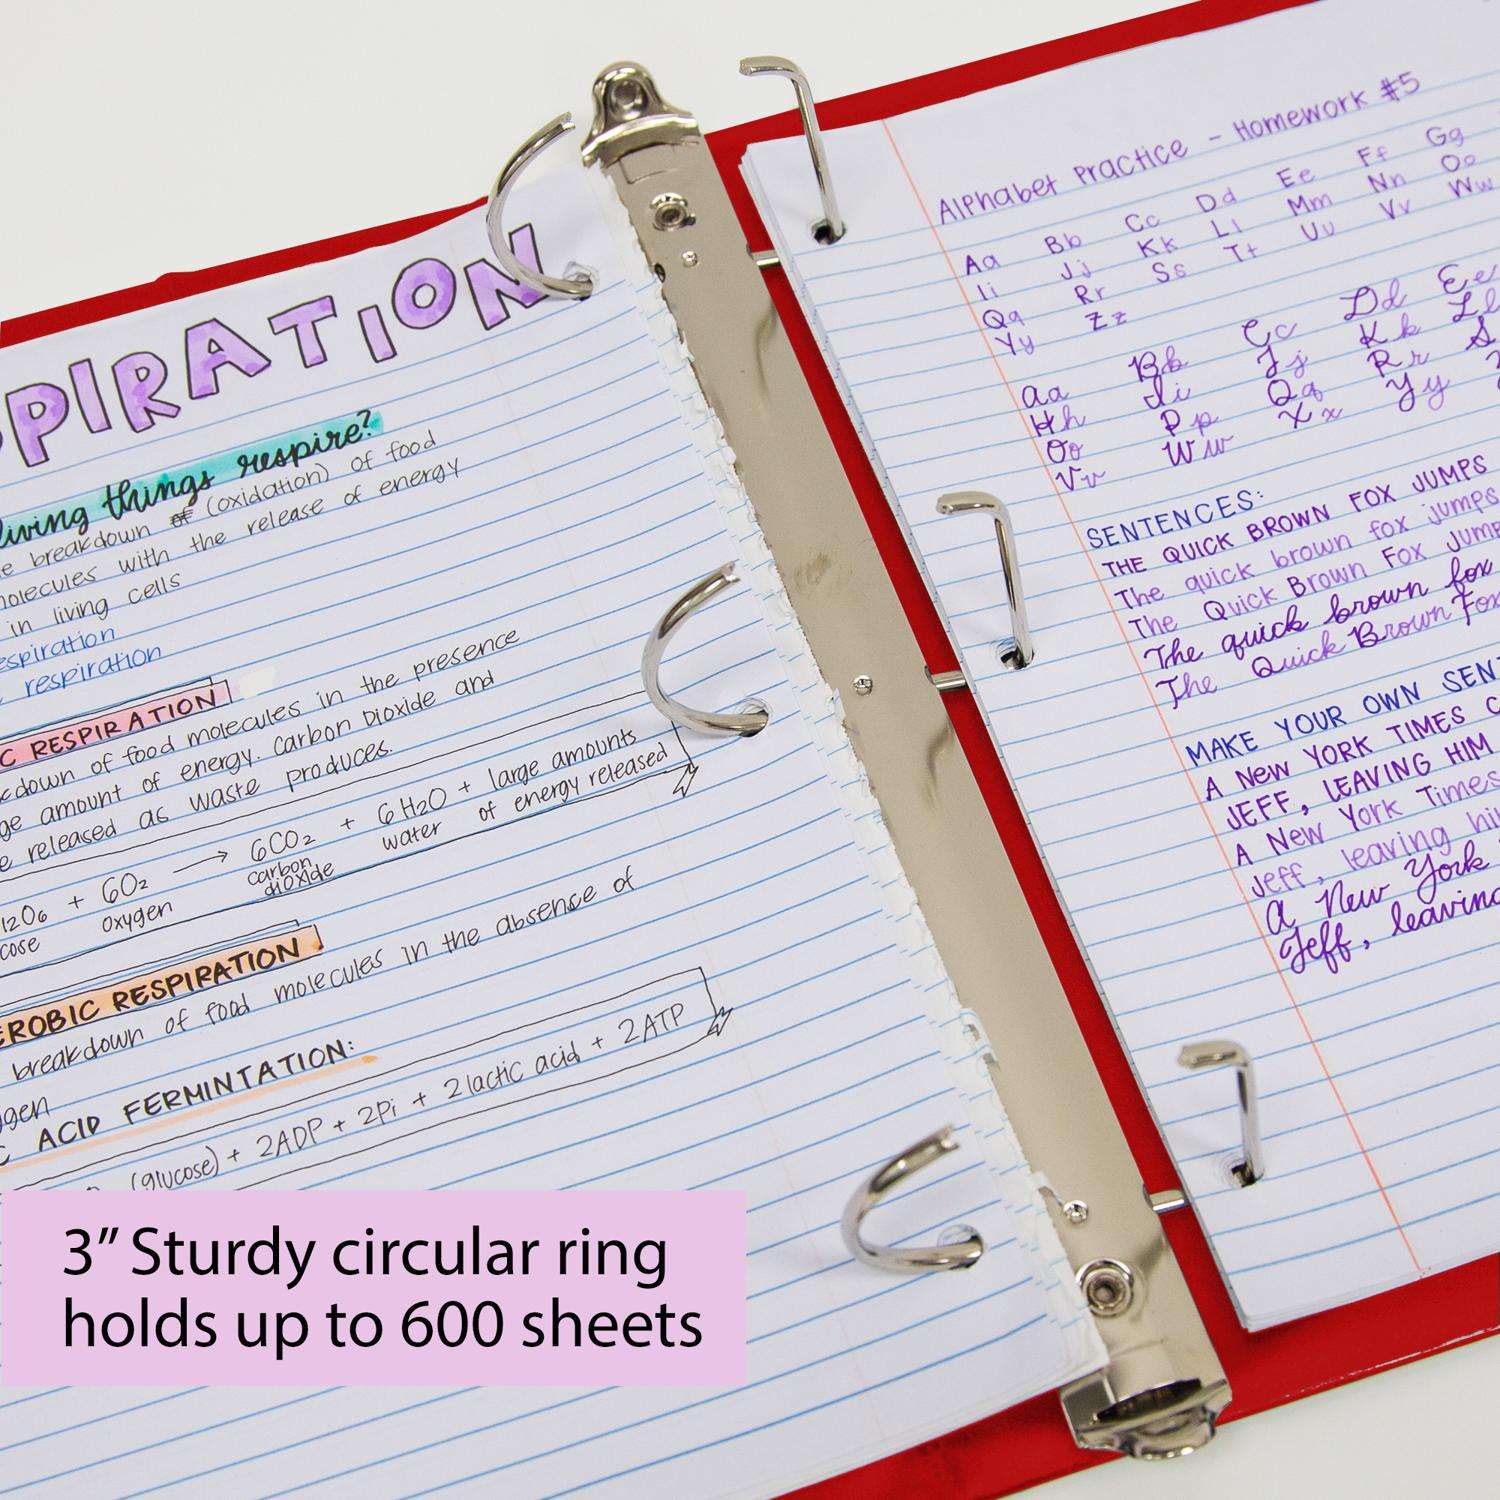 PIRATION
living things respire?
breakdown of (oxidation) of food
molecules with the release of energy
in living cells
respiration
respiration
C RESPIRATION
kdown of food molecules in the presence
ge amount of energy. Carbon Dioxide and
e released as waste produces.
12O6 + 6O2 → 6CO2 + 6H2O + large amounts
cose oxygen carbon dioxide water of energy released
EROBIC RESPIRATION
breakdown of food molecules in the absence of
gen
C ACID FERMINTATION:
(glucose) + 2ADP + 2Pi + 2 lactic acid + 2ATP
Alphabet Practice - Homework #5
Aa Bb Cc Dd Ee Ff Gg
Ii Jj Kk Ll Mm Nn Oo
Qq Rr Ss Tt Uu Vv Ww
Yy Zz
Aa Bb Cc Dd Ee
Hh Ii Jj Kk Ll
Oo Pp Qq Rr S
Vv Ww Xx Yy
SENTENCES:
THE QUICK BROWN FOX JUMPS
The quick brown fox jumps
The Quick Brown Fox Jump
The quick brown fox
The Quick Brown Fox
MAKE YOUR OWN SEN
A NEW YORK TIMES C
JEFF, LEAVING HIM
A New York Times
Jeff, leaving hi
A New York
Jeff, leaving
3” Sturdy circular ring
holds up to 600 sheets